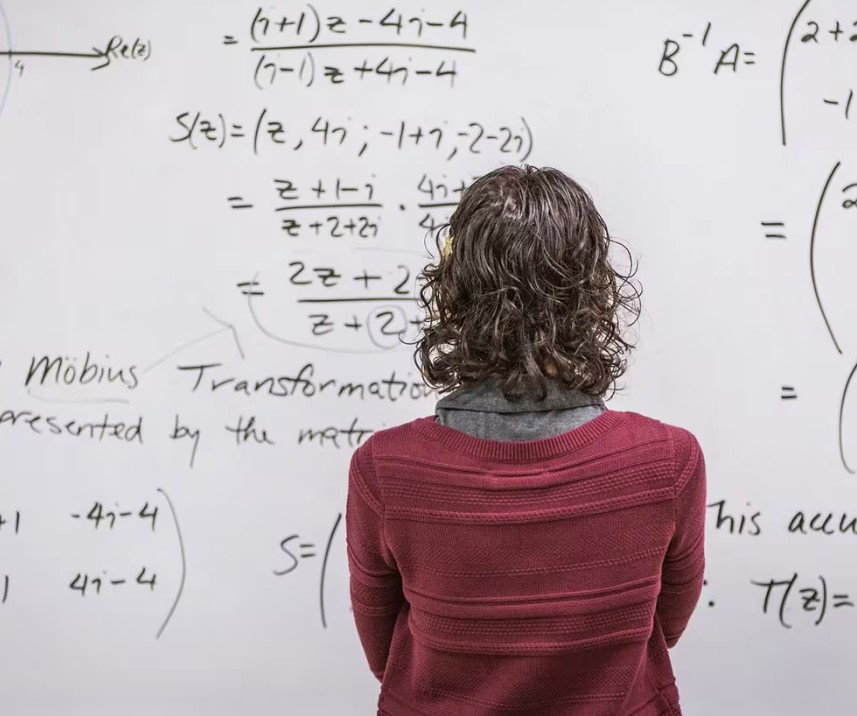 Re(z)
4
= (i+1)z-4i-4
(i-1)z+4i-4
S(z)=(z, 4i; -1+i, -2-2i)
= z+1-i / z+2+2i · 4i+
= 2z+2
z+2+
Möbius Transformatio
presented by the matr
+1 -4i-4
1 4i-4
S=(
B⁻¹A= (2+2
-1
= (2
= (
his accu
: T(z)=